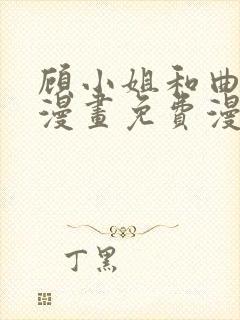 顾小姐和曲
漫畫免費漫
丁黑